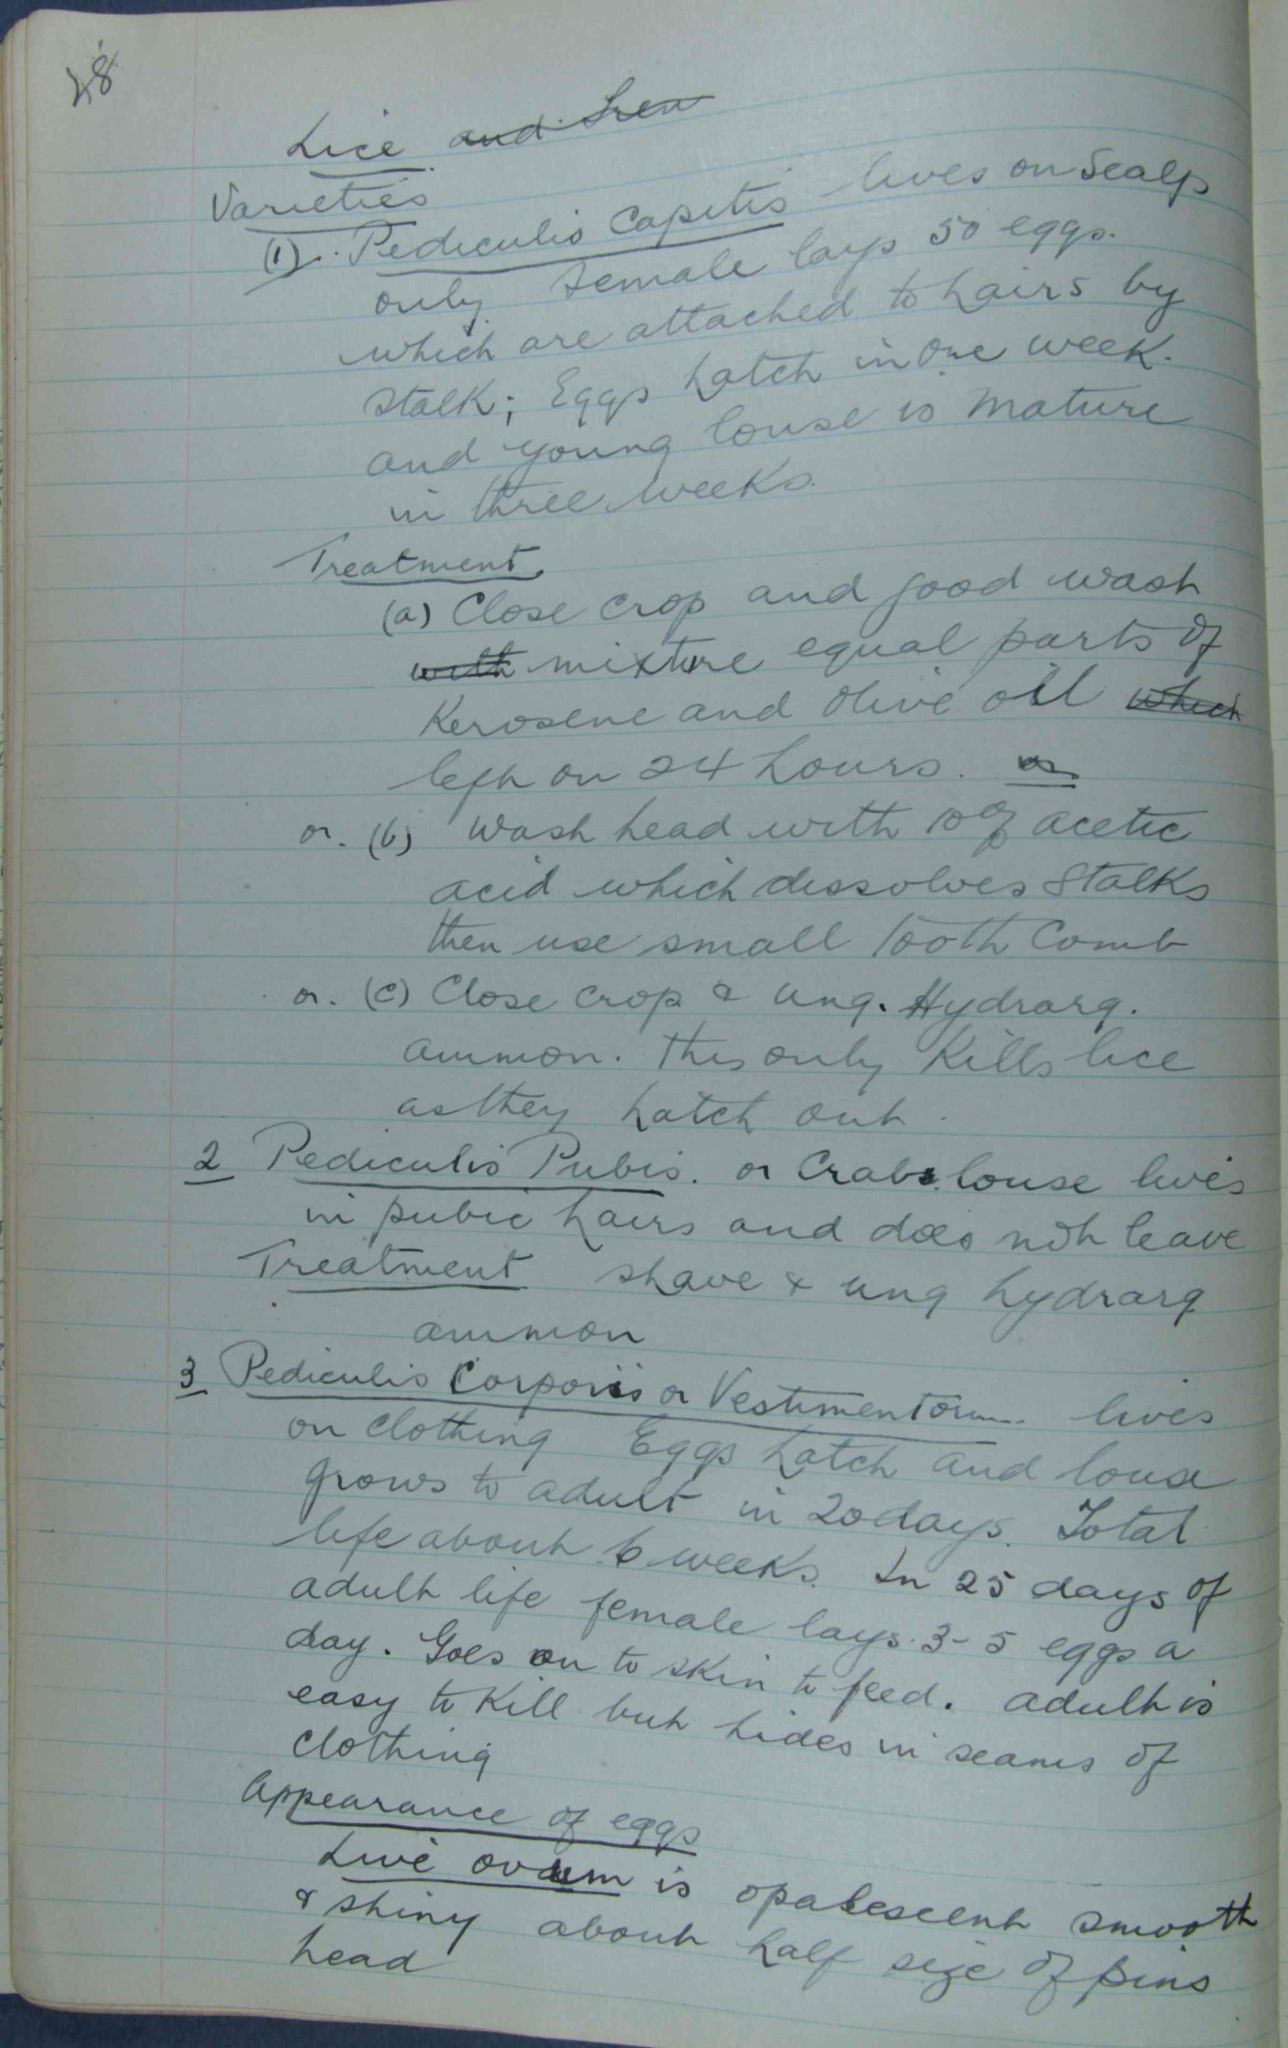 48
Lice and
Varieties
(1). Pediculis Capitis lives on Scalp
only. Female lays 50 eggs.
which are attached to hairs by
stalk; Eggs hatch in one week.
and young louse is mature
in three weeks.
Treatment.
(a) Close crop and good wash
with mixture equal parts of
Kerosene and Olive oil which
left on 24 hours. or
or. (b) Wash head with 10% acetic
acid which dissolves stalks
then use small tooth comb
or. (c) Close crop & ung. Hydrarg.
ammon. This only kills lice
as they hatch out.
2 Pediculis Pubis. or Crab louse lives
in pubic hairs and does not leave
Treatment shave & ung hydrarg
ammon
3 Pediculis Corporis or Vestimentorum. lives
on clothing Eggs hatch and louse
grows to adult in 20 days. Total
life about 6 weeks. In 25 days of
adult life female lays 3-5 eggs a
day. Goes on to skin to feed. Adult is
easy to kill but hides in seams of
clothing
Appearance of eggs
Live ovum is opalescent smooth
& shiny about half size of pins
head